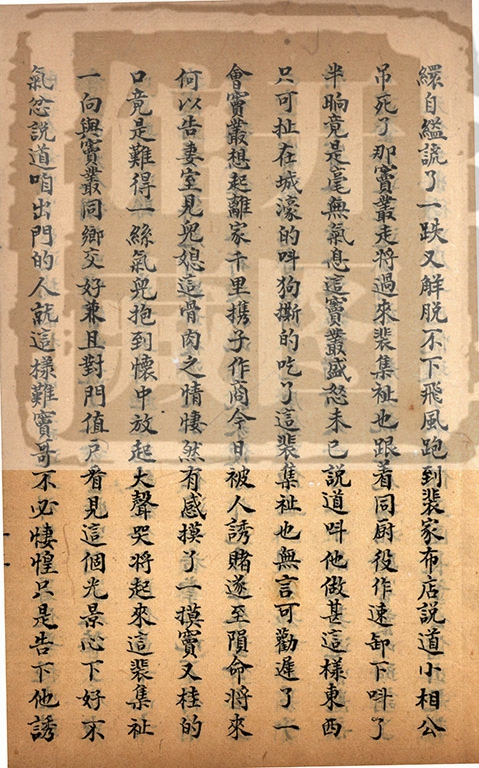 繯自縊諕了一跌又解脱不下飛風跑到裴家布店説道小相公
吊死了那竇叢走將過來裴集祉也跟着同厨役作速卸下呌了
半晌竟是毫無氣息這竇叢盛怒未已説道呌他做甚這様東西
只可扯在城濠的呌狗撕的吃了這裴集祉也無言可勸遲了一
會竇叢想起離家千里携子作商今日被人誘賭遂至隕命將來
何以告妻室見兒媳這骨肉之情悽然有感摸了一摸竇又桂的
口竟是難得一絲氣兒抱到懷中放起大聲哭將起來這裴集祉
一向與竇叢同鄉交好兼且對門值戸看見這個光景心下好不
氣忿説道咱出門的人就這様難竇哥不必悽惶只是告下他誘